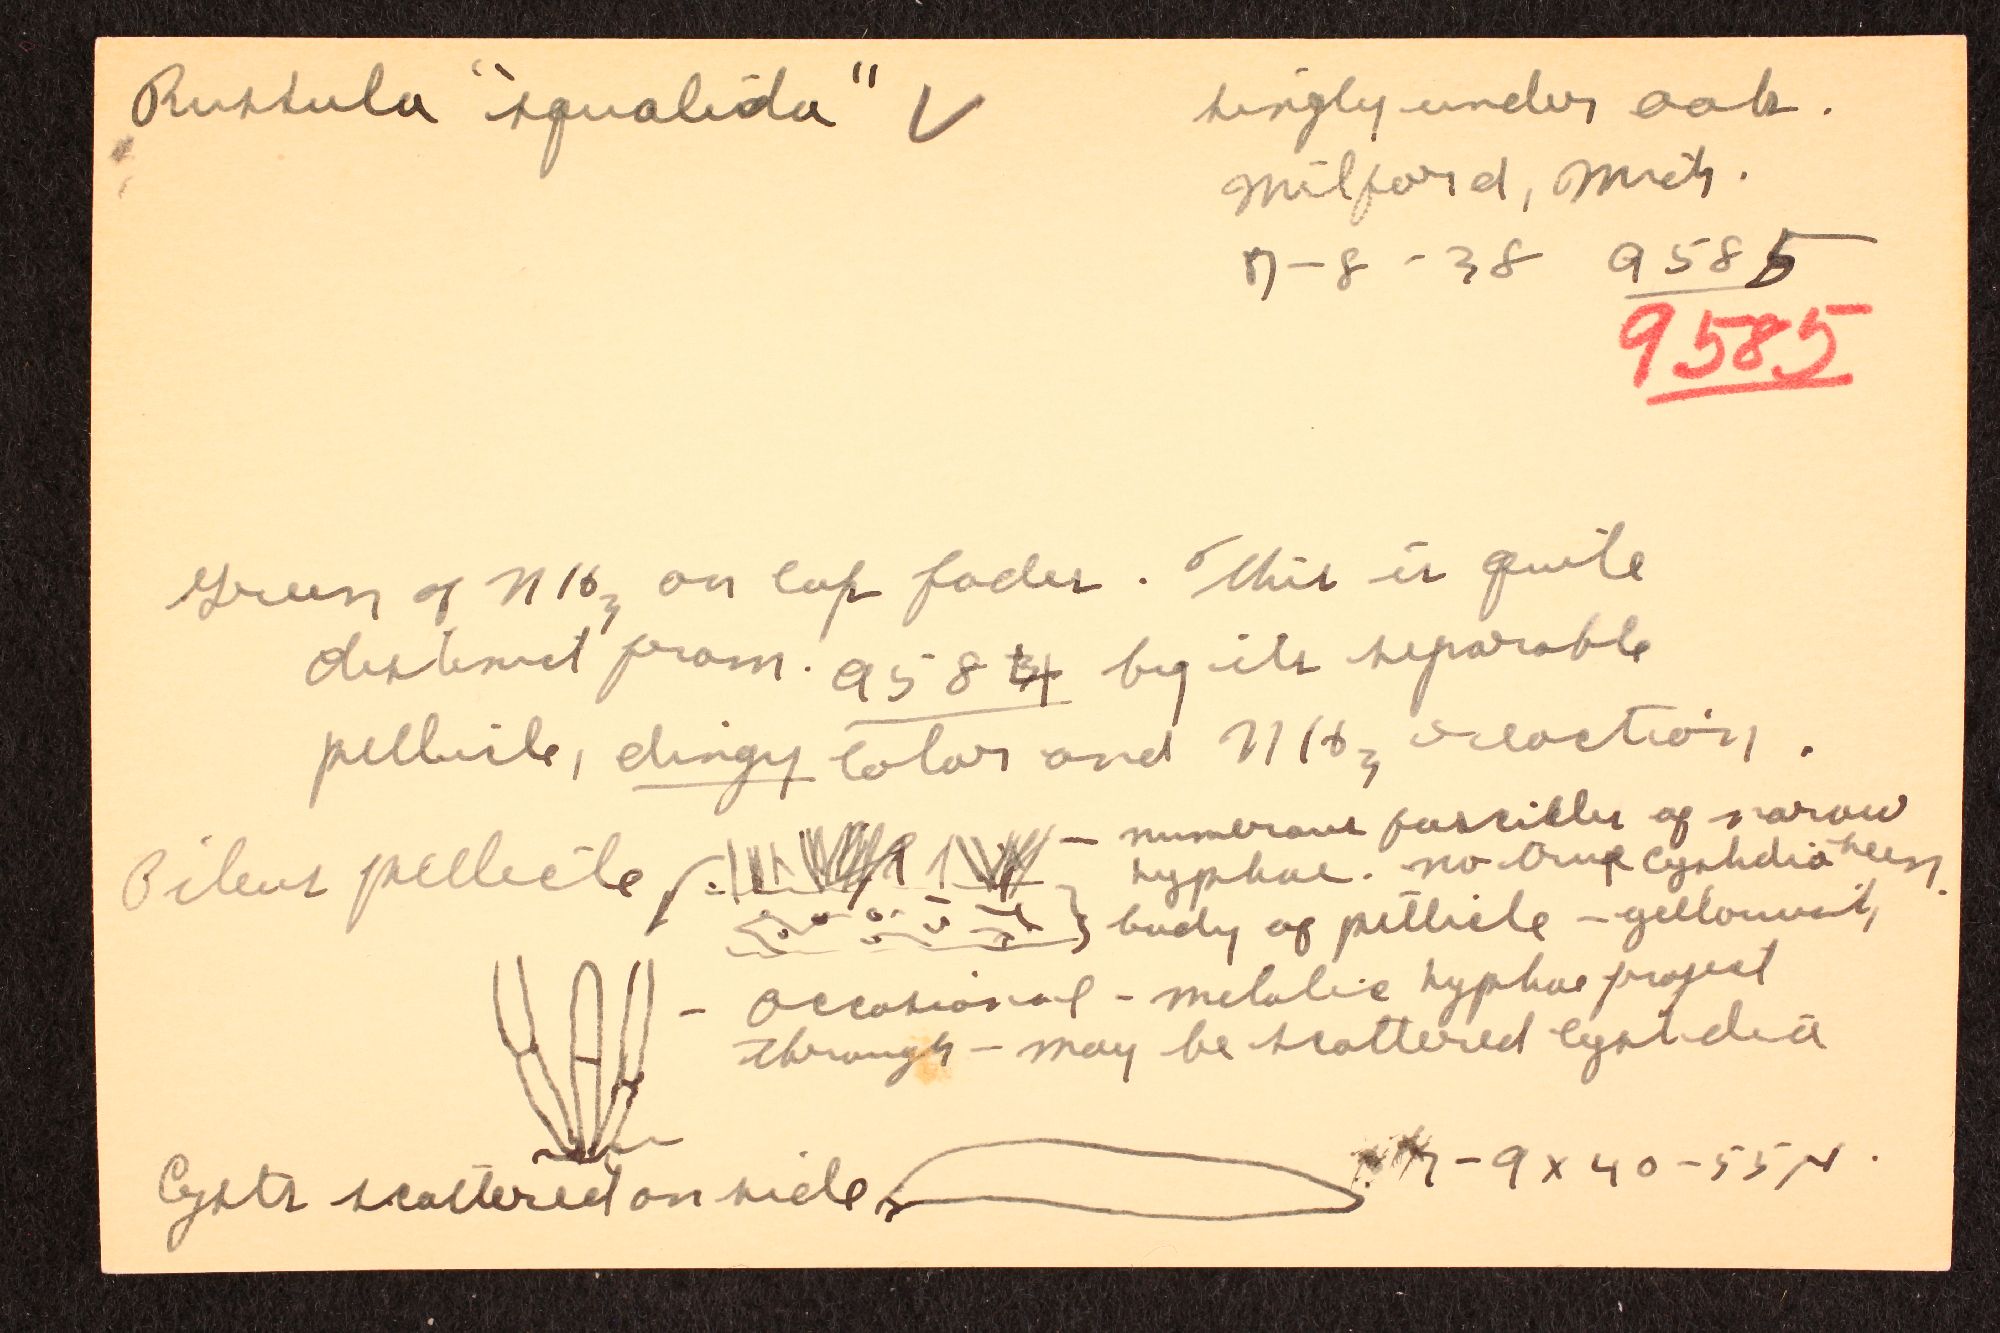 Russula "squalida" ✓
singly under oak.
Milford, Mich.
7-8-38 9585
9585
Green of NH3 on cap fades. This is quite
distinct from. 9584 by its separable
pellicle, dingy color and NH3 reaction.
Pileus pellicle
- numerous fascicles of narow
hyphae. no true cystidia seen.
} body of pellicle - gelloni
- occasional - hyphae project
through - may be scattered cystidia
Cysts scattered on side
7-9 x 40-55 µ.